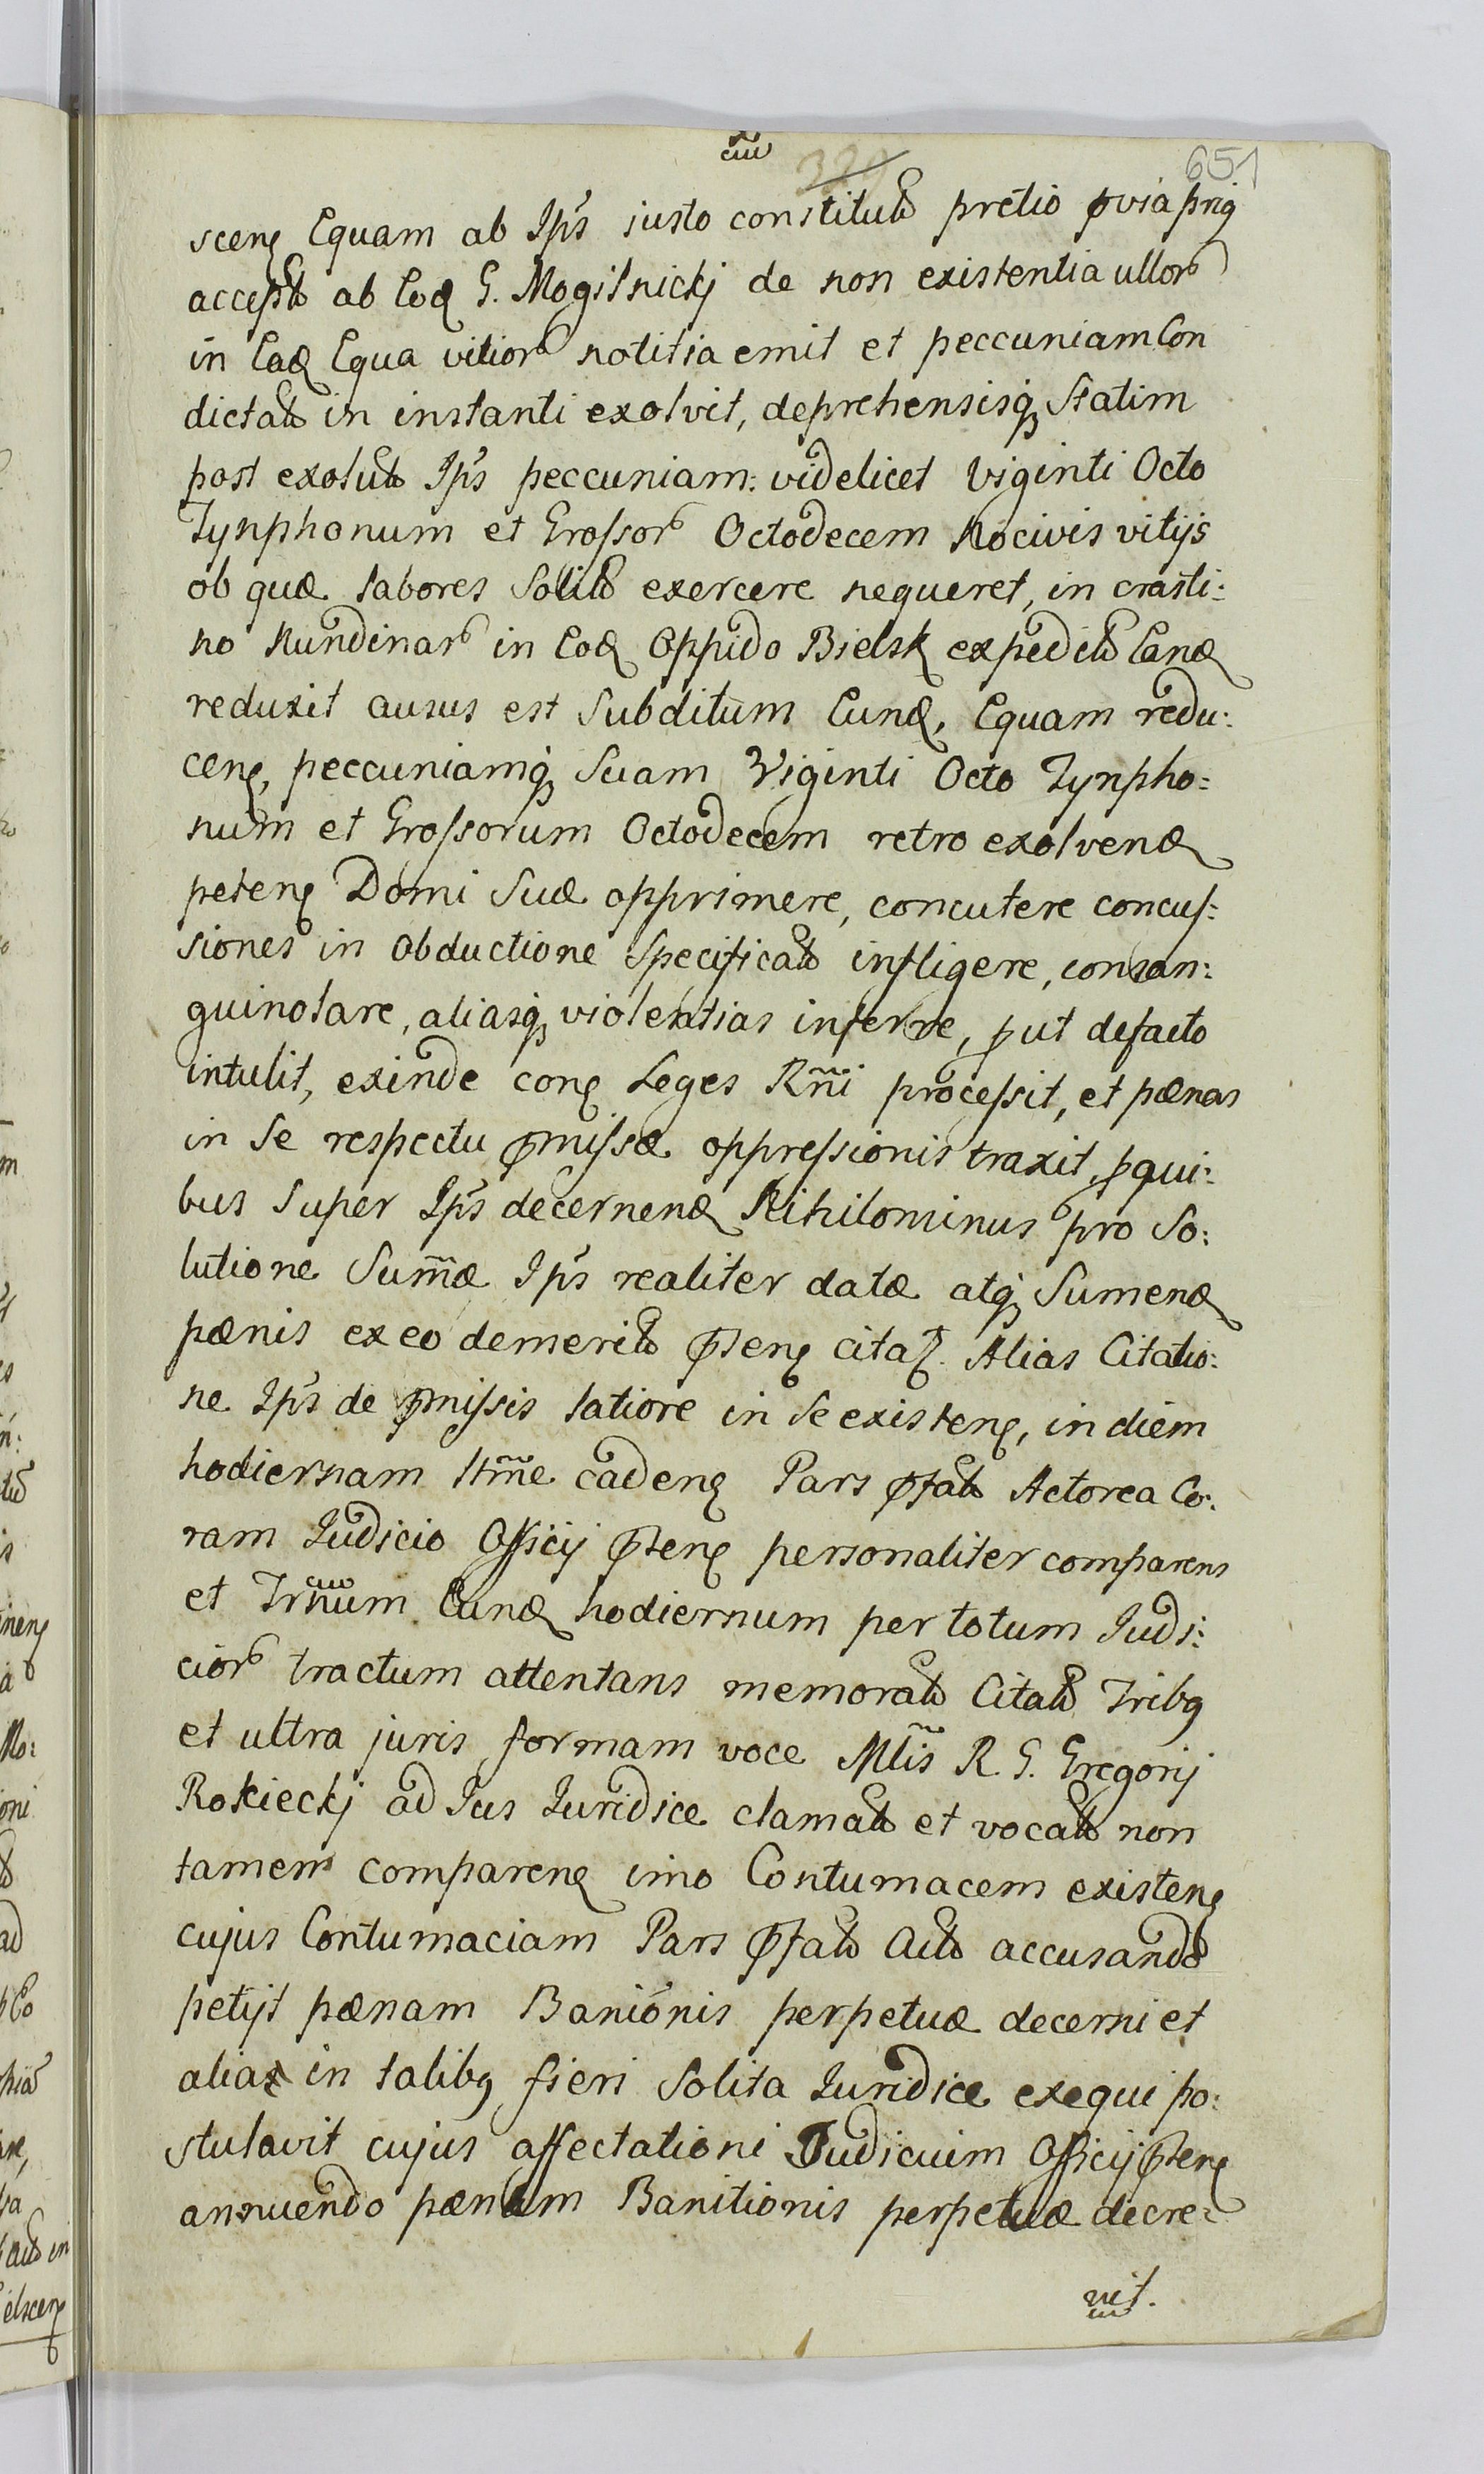 651
scen Equam ab Ips justo constitut pretio pria prig
accept ab Eod G. Mogilnickj de non existentia ullor
in Ead Equa vitior notitia emit et peccuniam Con
dictat in instanti exolvit, deprehensisq Statim
post exolut Ips peccuniam: videlicet Viginti Octo
Tynphonum et Grossor Octodecem Nocivis vitijs
ob quæ labores Solit exercere nequeret, in crasti:
no Nundinar in Eod Oppido Bielsk expedit Eand
reduxit ausus est Subditum Eund, Equam redu:
cen, peccuniamq Suam Viginti Octo Tynpho:
num et Grossorum Octodecem retro exolvend
peten Domi Suæ opprimere, concutere concus:
siones in Obductione Specificat infligere, consan:
guinolare, aliasq violentias inferre, put defacto
intulit, exinde con Leges Rñi processit, et pænas
in Se respectu pmissæ oppressionis traxit, p qui:
bus Super Ips decernend Nihilominus pro So:
lutione Sum̃æ Ips realiter datæ atq Sumend
pænis ex eo demerit psen citat. Alias Citatio:
ne Ips de pmissis latiore in Se existen, in diem
hodiernam ltm̃e caden Pars pfat Actorea Co:
ram Judicio Officij psen personaliter comparens
et Trñum Eund hodiernum per totum Judi:
cior tractum attentans memorat Citat Tribq
et ultra juris formam voce Mlis R. G. Gregorij
Rokieckj ad Jus Juridice clamat et vocat non
tamen comparen imo Contumacem existen
cujus Contumaciam Pars pfat Act accusando
petijt pænam Baniõnis perpetuæ decerni et
alias in talibq fieri Solita Juridice exequi po:
stulavit cujus affectationi Judicium Officij psen
annuendo pænam Banitionis perpetuæ decre:
vit.